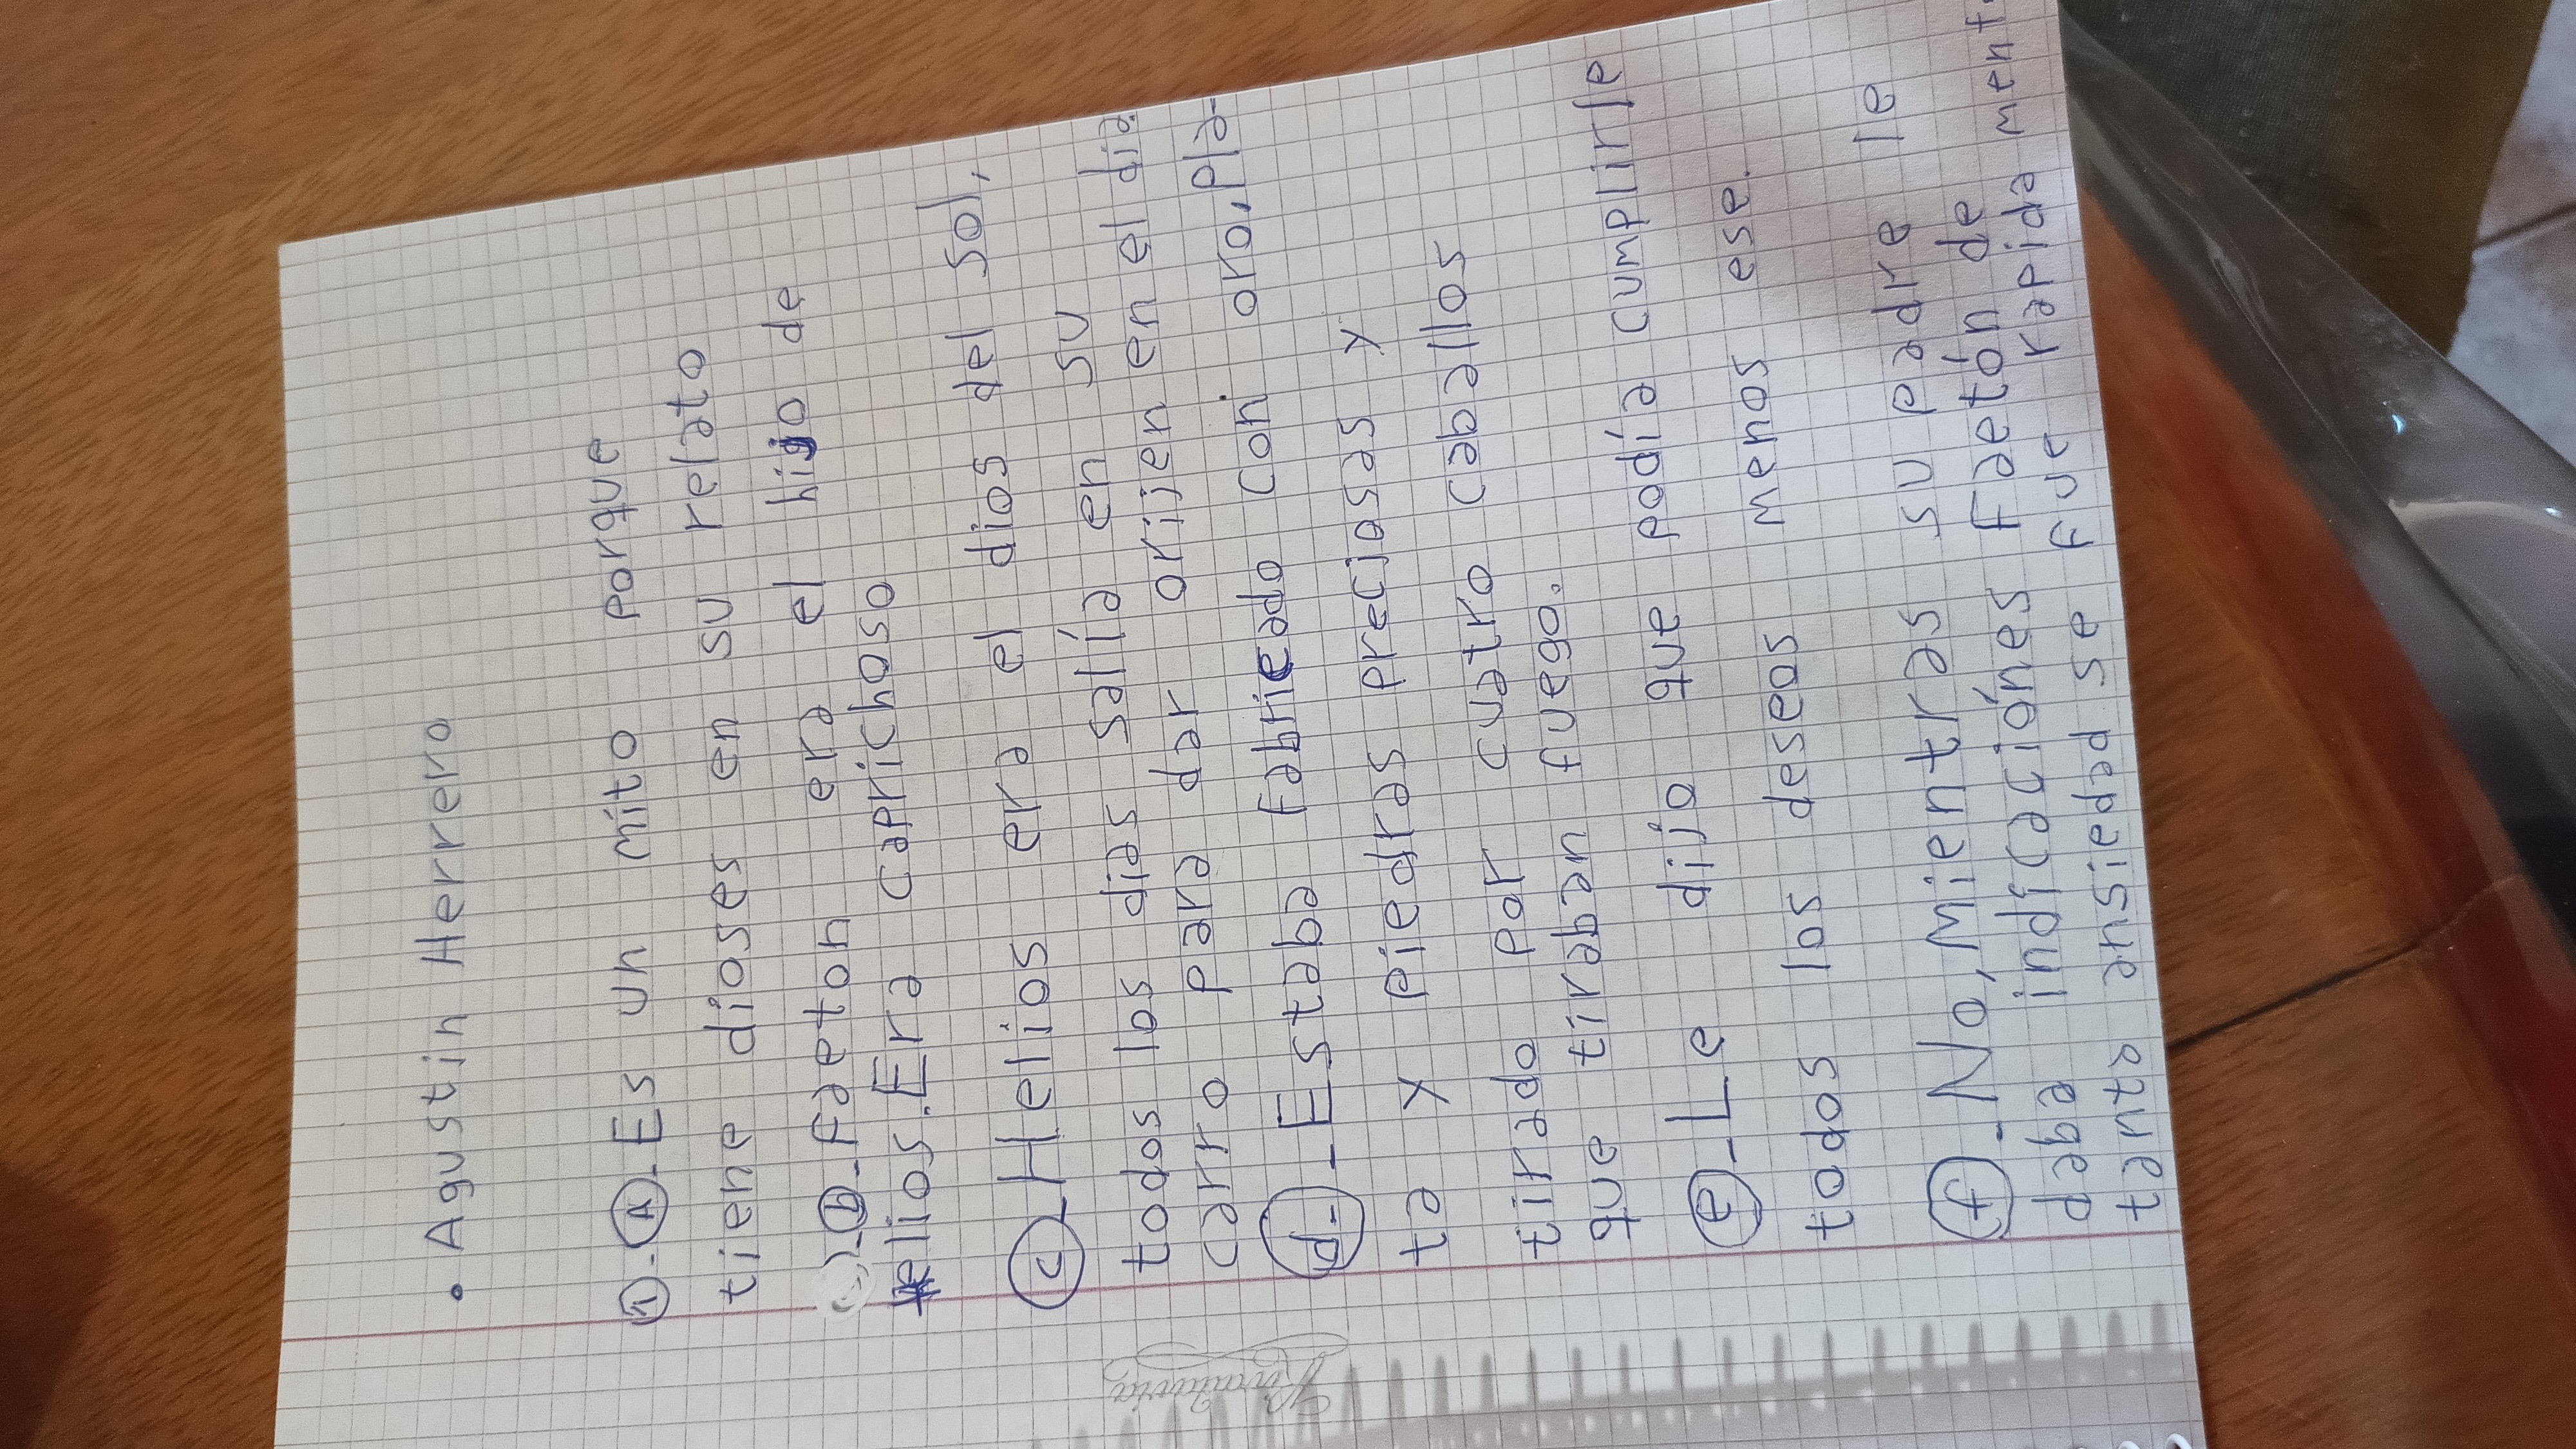 • Agustin Herrero
1-A-Es un mito porque
tiene dioses en su relato
b-Faeton era el hijo de
elios.Era caprichoso
c-Helios era el dios del sol,
todos los dias salía en su
carro para dar orijen en el dia.
d--Estaba fabricado con oro,pla-
ta y piedras preciosas y
tirado por cuatro caballos
que tiraban fuego.
e-Le dijo que podía cumplirle
todos los deseos menos ese.
f-No,Mientras su padre le
daba indicaciónes Faetón de
tanto ansiedad se fue rapida ment.
Rivadavia